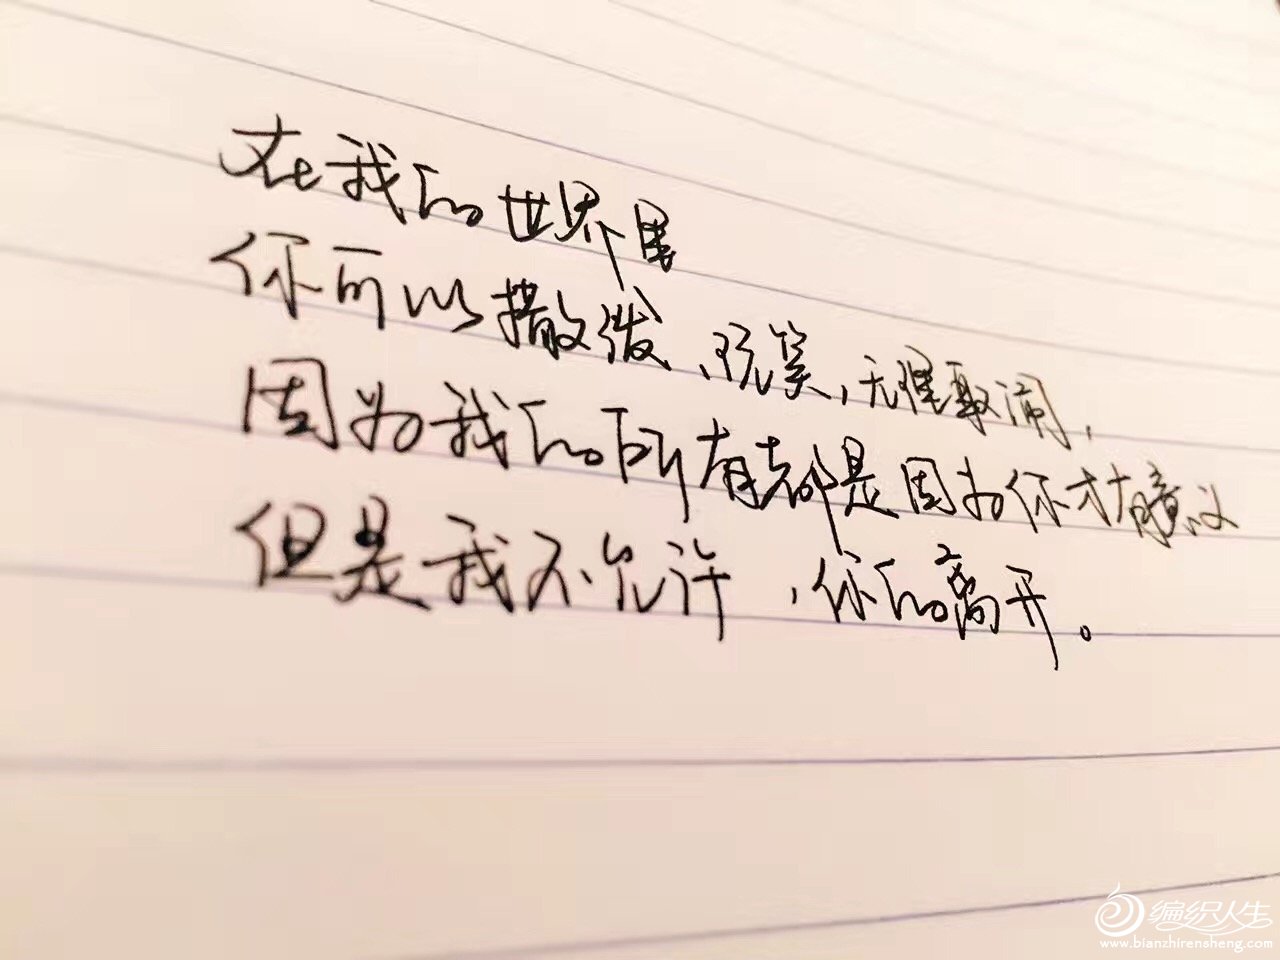 在我的世界里
你可以撒泼、玩笑,无理取闹,
因为我的所有都是因为你才有意义
但是我不允许,你的离开。
编织人生
www.bianzhirensheng.com